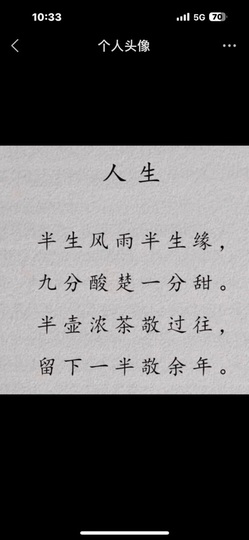 10:33
5G
70
个人头像
人生
半生风雨半生缘，
九分酸楚一分甜。
半壶浓茶敬过往，
留下一半敬余年。